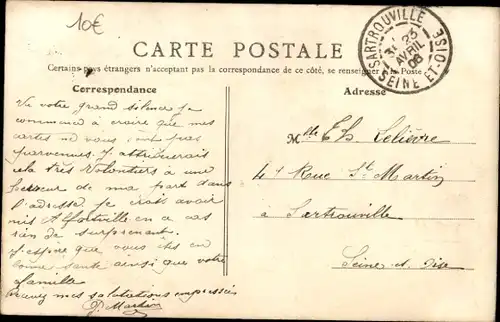 10€
CARTE POSTALE
Certains pays étrangers n'acceptant pas la correspondance de ce côté, se renseigner à la Poste
SARTROUVILLE
23
AVRIL
08
SEINE-ET-OISE
Correspondance
Vu votre grand silence je
commence à croire que mes
cartes ne vous pas
parvenues. J'attribuerais
cela très volontiers à une
de ma part dans
l'adresse je crois avoir
mis Alfortville en ce cas
rien de surprenant.
J'espère que vous êtes en
bonne santé ainsi que votre
famille
Recevez mes salutations empressées
P. Martin
Adresse
Mlle Th Lelièvre
41 Rue St Martin
à Sartrouville
Seine et Oise